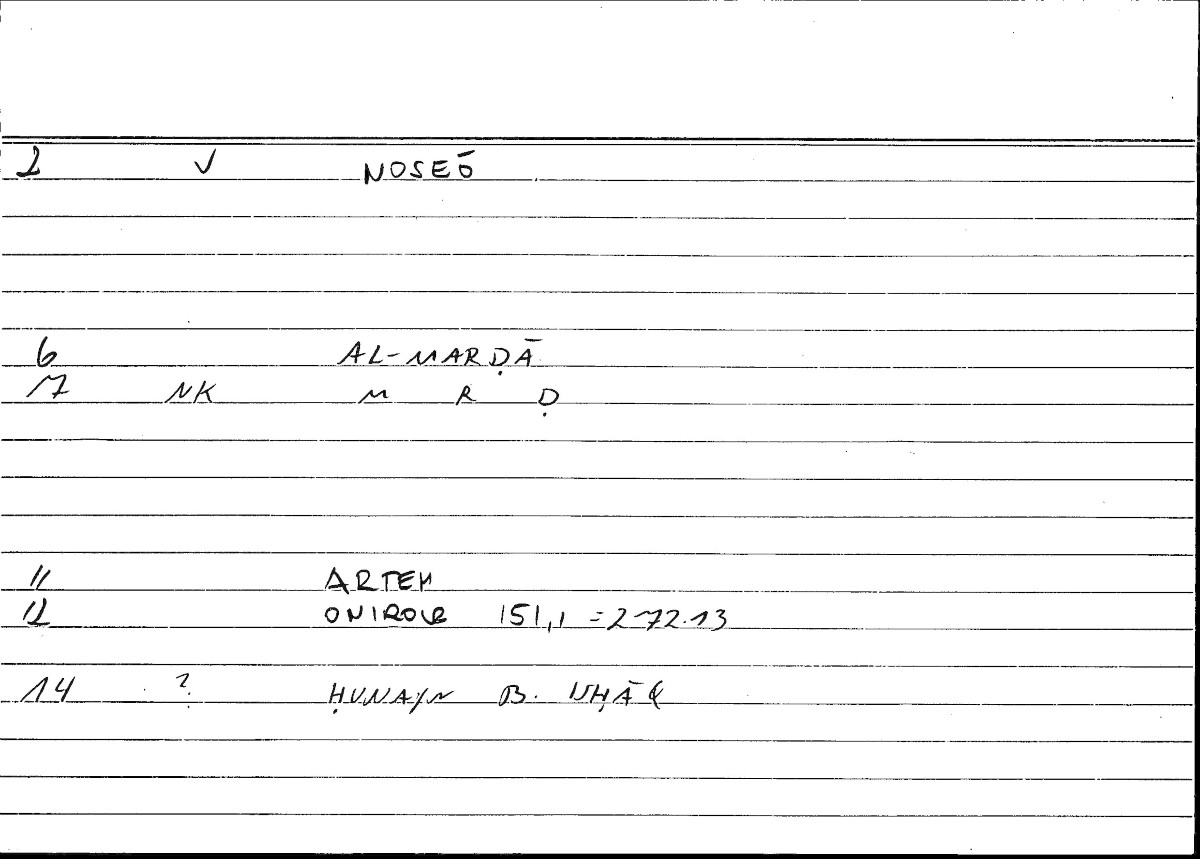 2 V NOSEŌ
6 AL-MARḌĀ
7 NK M R Ḍ
11 ARTEM
12 ONIROCR 151,1 = 272.13
14 ? ḤUNAYN B. ISḤĀQ